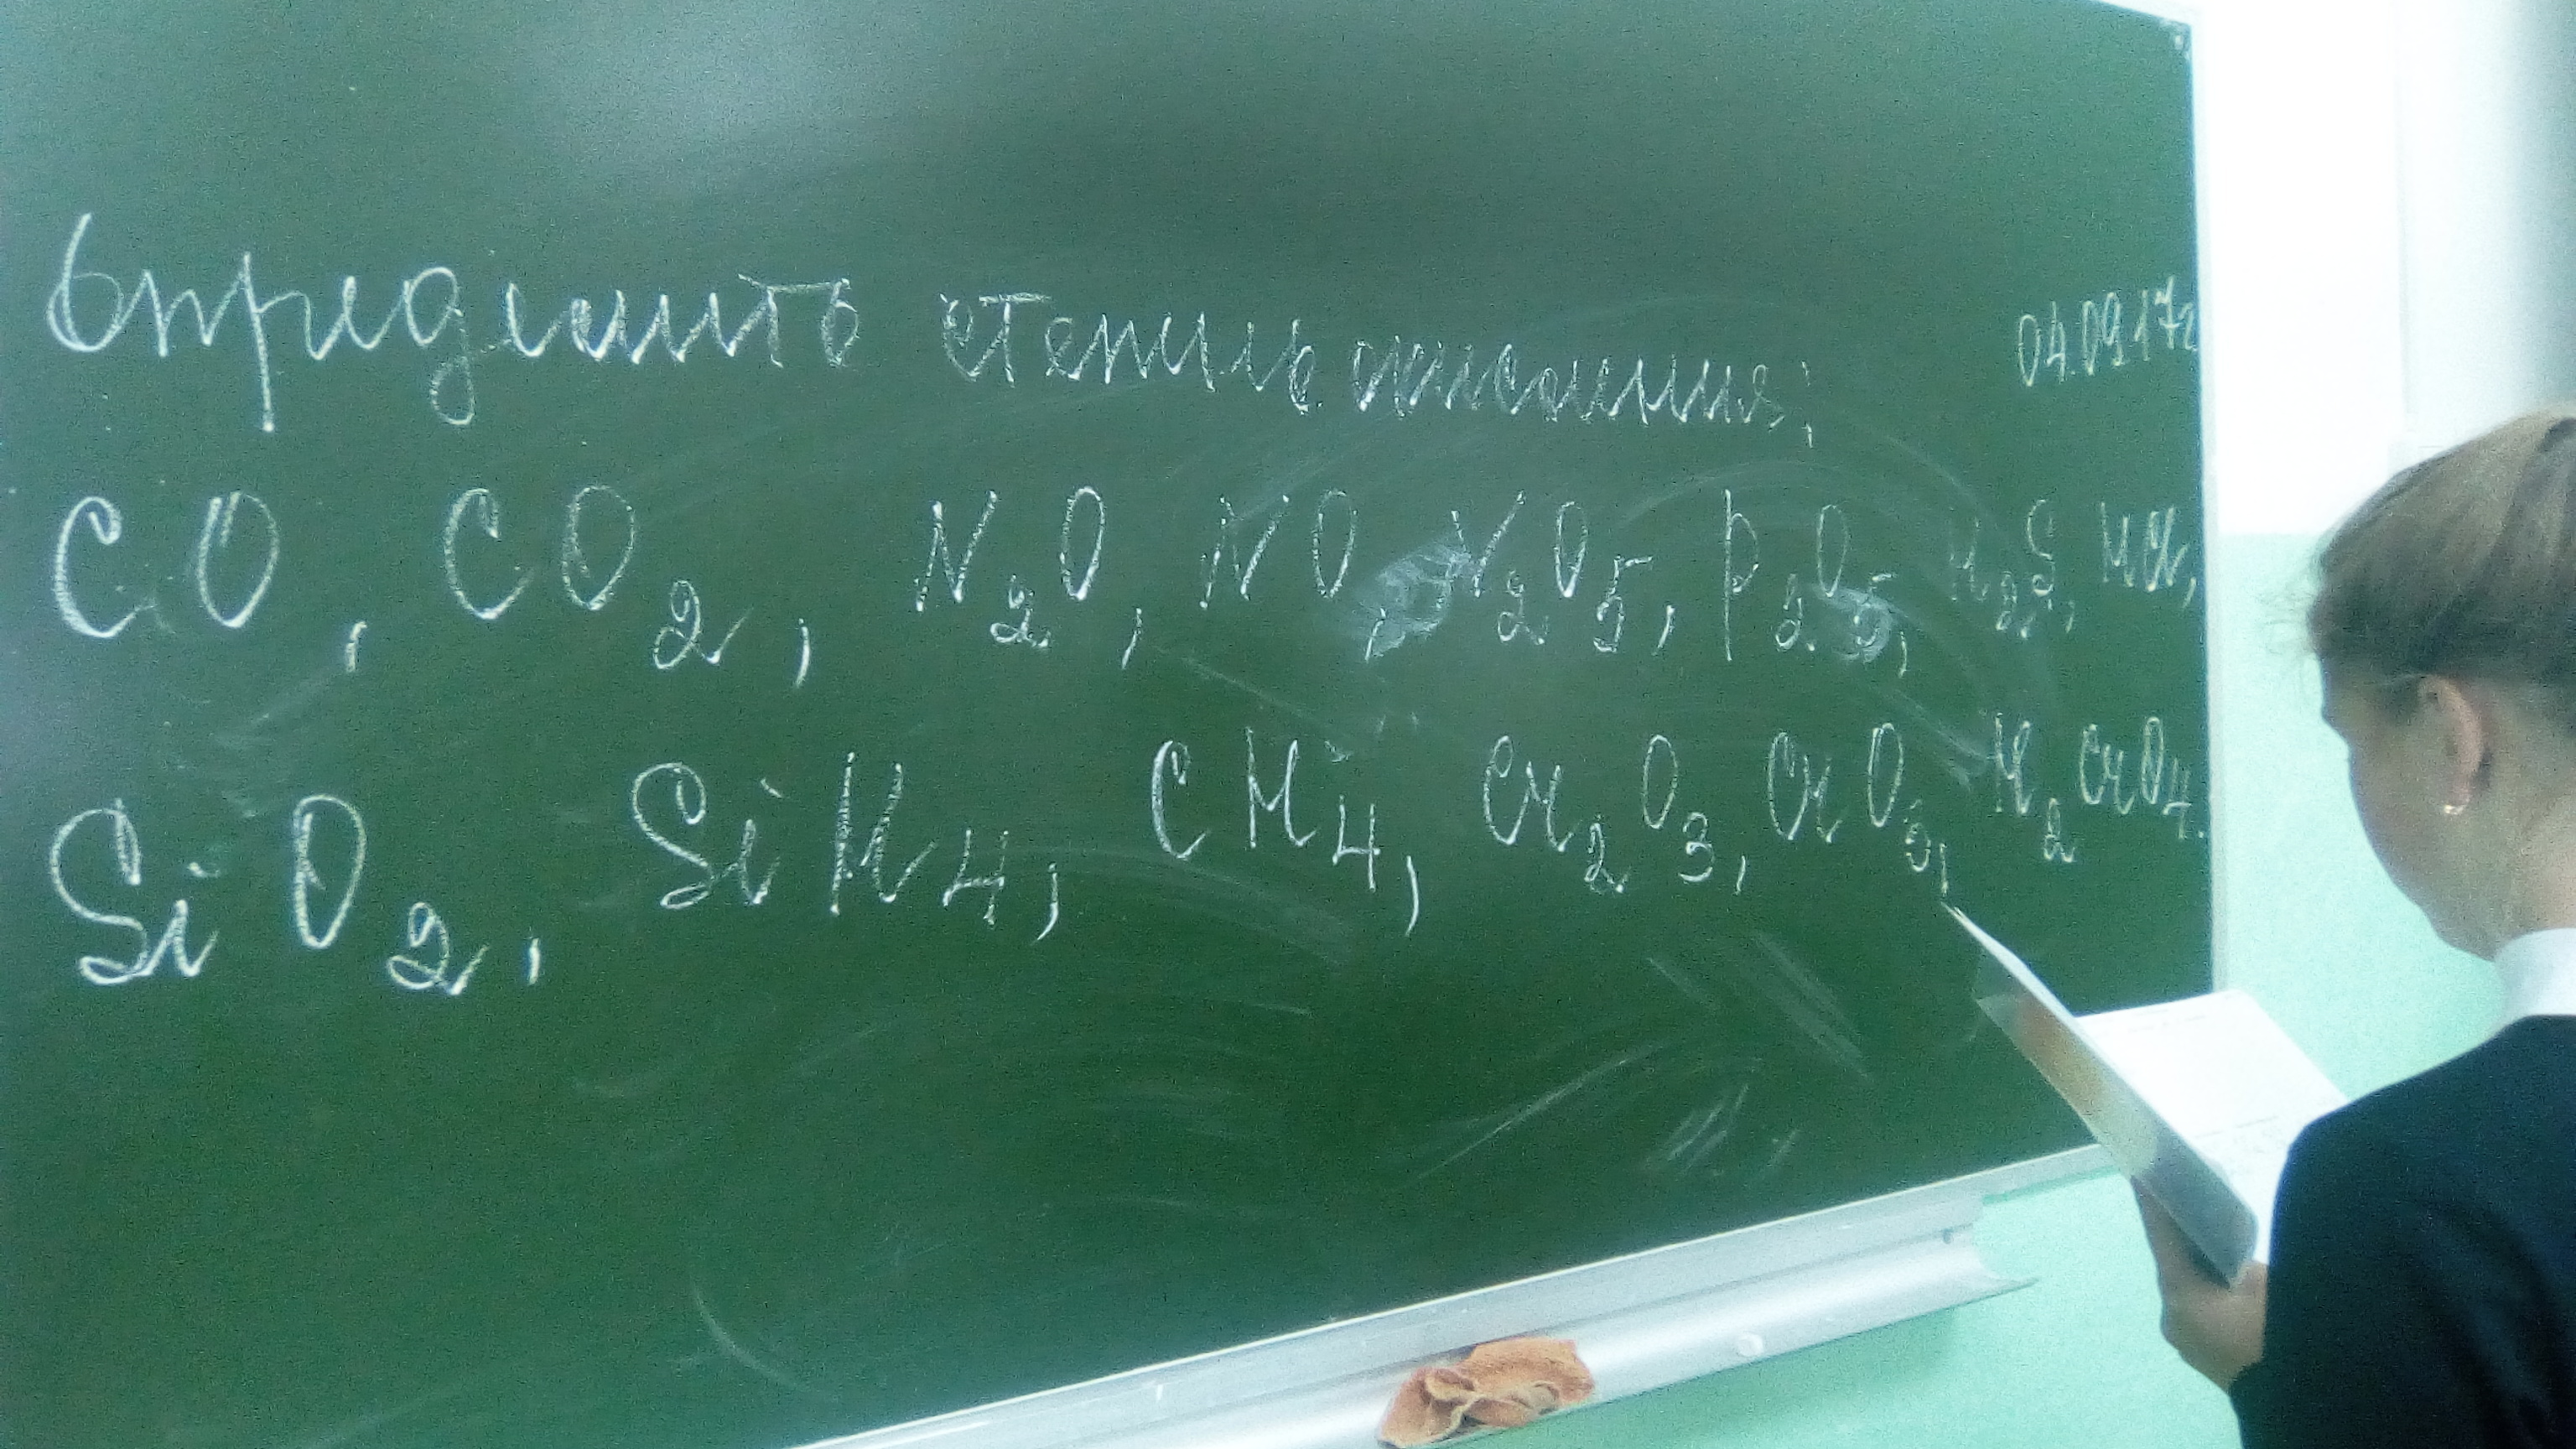 Определить степень окисления; 04.09.17г
CO, CO2, N2O, NO, N2O5, P2O5, H2S, HCl,
SiO2, SiH4, CH4, Cr2O3, CrO3, H2CrO4.